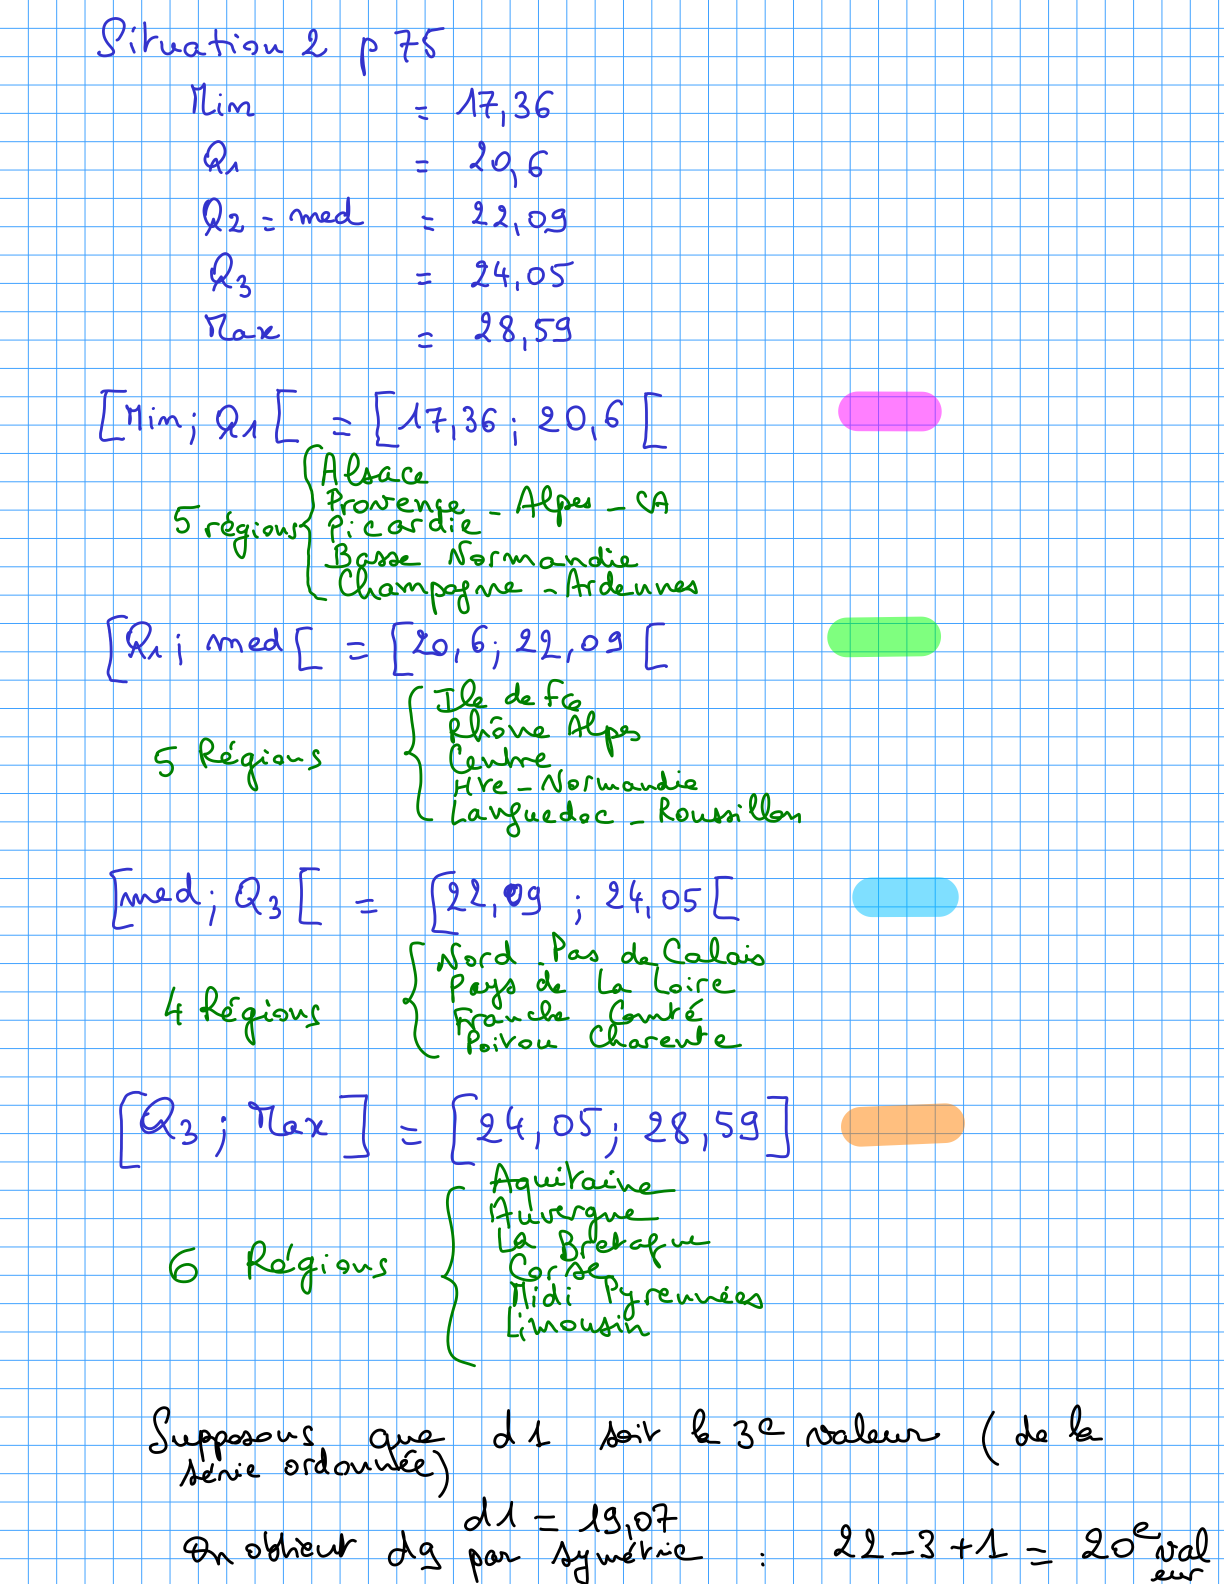 Situation 2 p 75
Min = 17,36
Q1 = 20,6
Q2 = med = 22,09
Q3 = 24,05
Max = 28,59
[Min; Q1[ = [17,36; 20,6[
5 régions
Alsace
Provence - Alpes - CA
Picardie
Basse Normandie
Champagne - Ardennes
[Q1; med[ = [20,6; 22,09[
5 Régions
Ile de Fce
Rhône Alpes
Centre
Hte - Normandie
Languedoc - Roussillon
[med; Q3[ = [22,09 ; 24,05[
4 Régions
Nord Pas de Calais
Pays de La Loire
Franche Comté
Poitou Charente
[Q3; Max] = [24,05; 28,59]
6 Régions
Aquitaine
Auvergne
La Bretagne
Corse
Midi Pyrennées
Limousin
Supposons que d1 soit la 3e valeur (de la
série ordonnée)
d1 = 19,07
On obtient d9 par symétrie : 22-3+1 = 20e val
eur